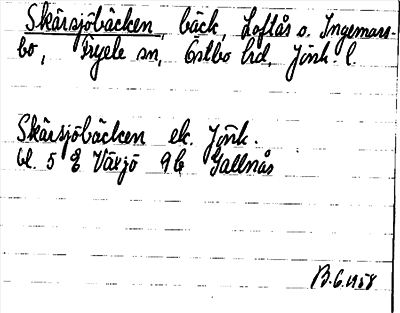 Skärsjöbäcken, bäck, Loftås o. Ingemars-
bo, Fryele sn, Östbo hd, Jönk. l.
Skärsjöbäcken ek. Jönk.
bl. 5 E Växjö 9 b Gallnås
B. G. 1958